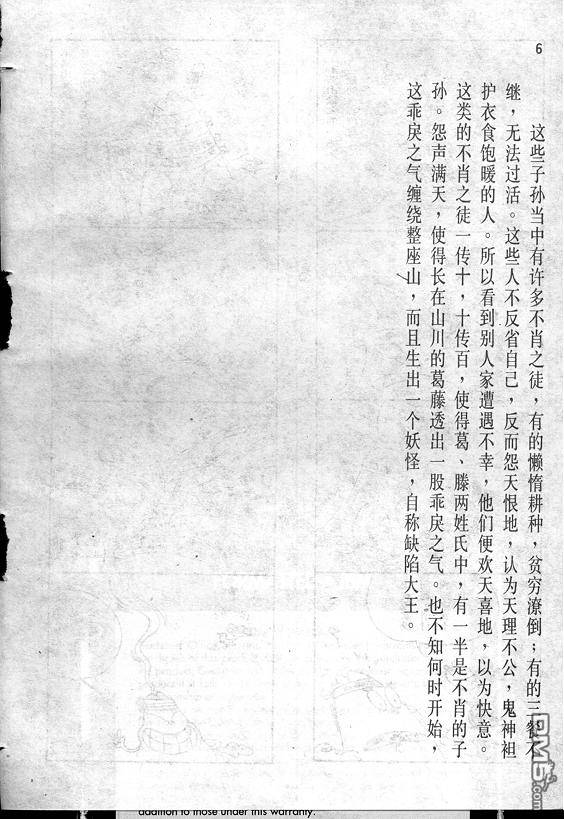 6
这些子孙当中有许多不肖之徒，有的懒惰耕种，贫穷潦倒；有的三餐不
继，无法过活。这些人不反省自己，反而怨天恨地，认为天理不公，鬼神袒
护衣食饱暖的人。所以看到别人家遭遇不幸，他们便欢天喜地，以为快意。
这类的不肖之徒一传十，十传百，使得葛、滕两姓氏中，有一半是不肖的子
孙。怨声满天，使得长在山川的葛藤透出一股乖戾之气。也不知何时开始，
这乖戾之气缠绕整座山，而且生出一个妖怪，自称缺陷大王。
DM5.com
addition to those under this warranty.